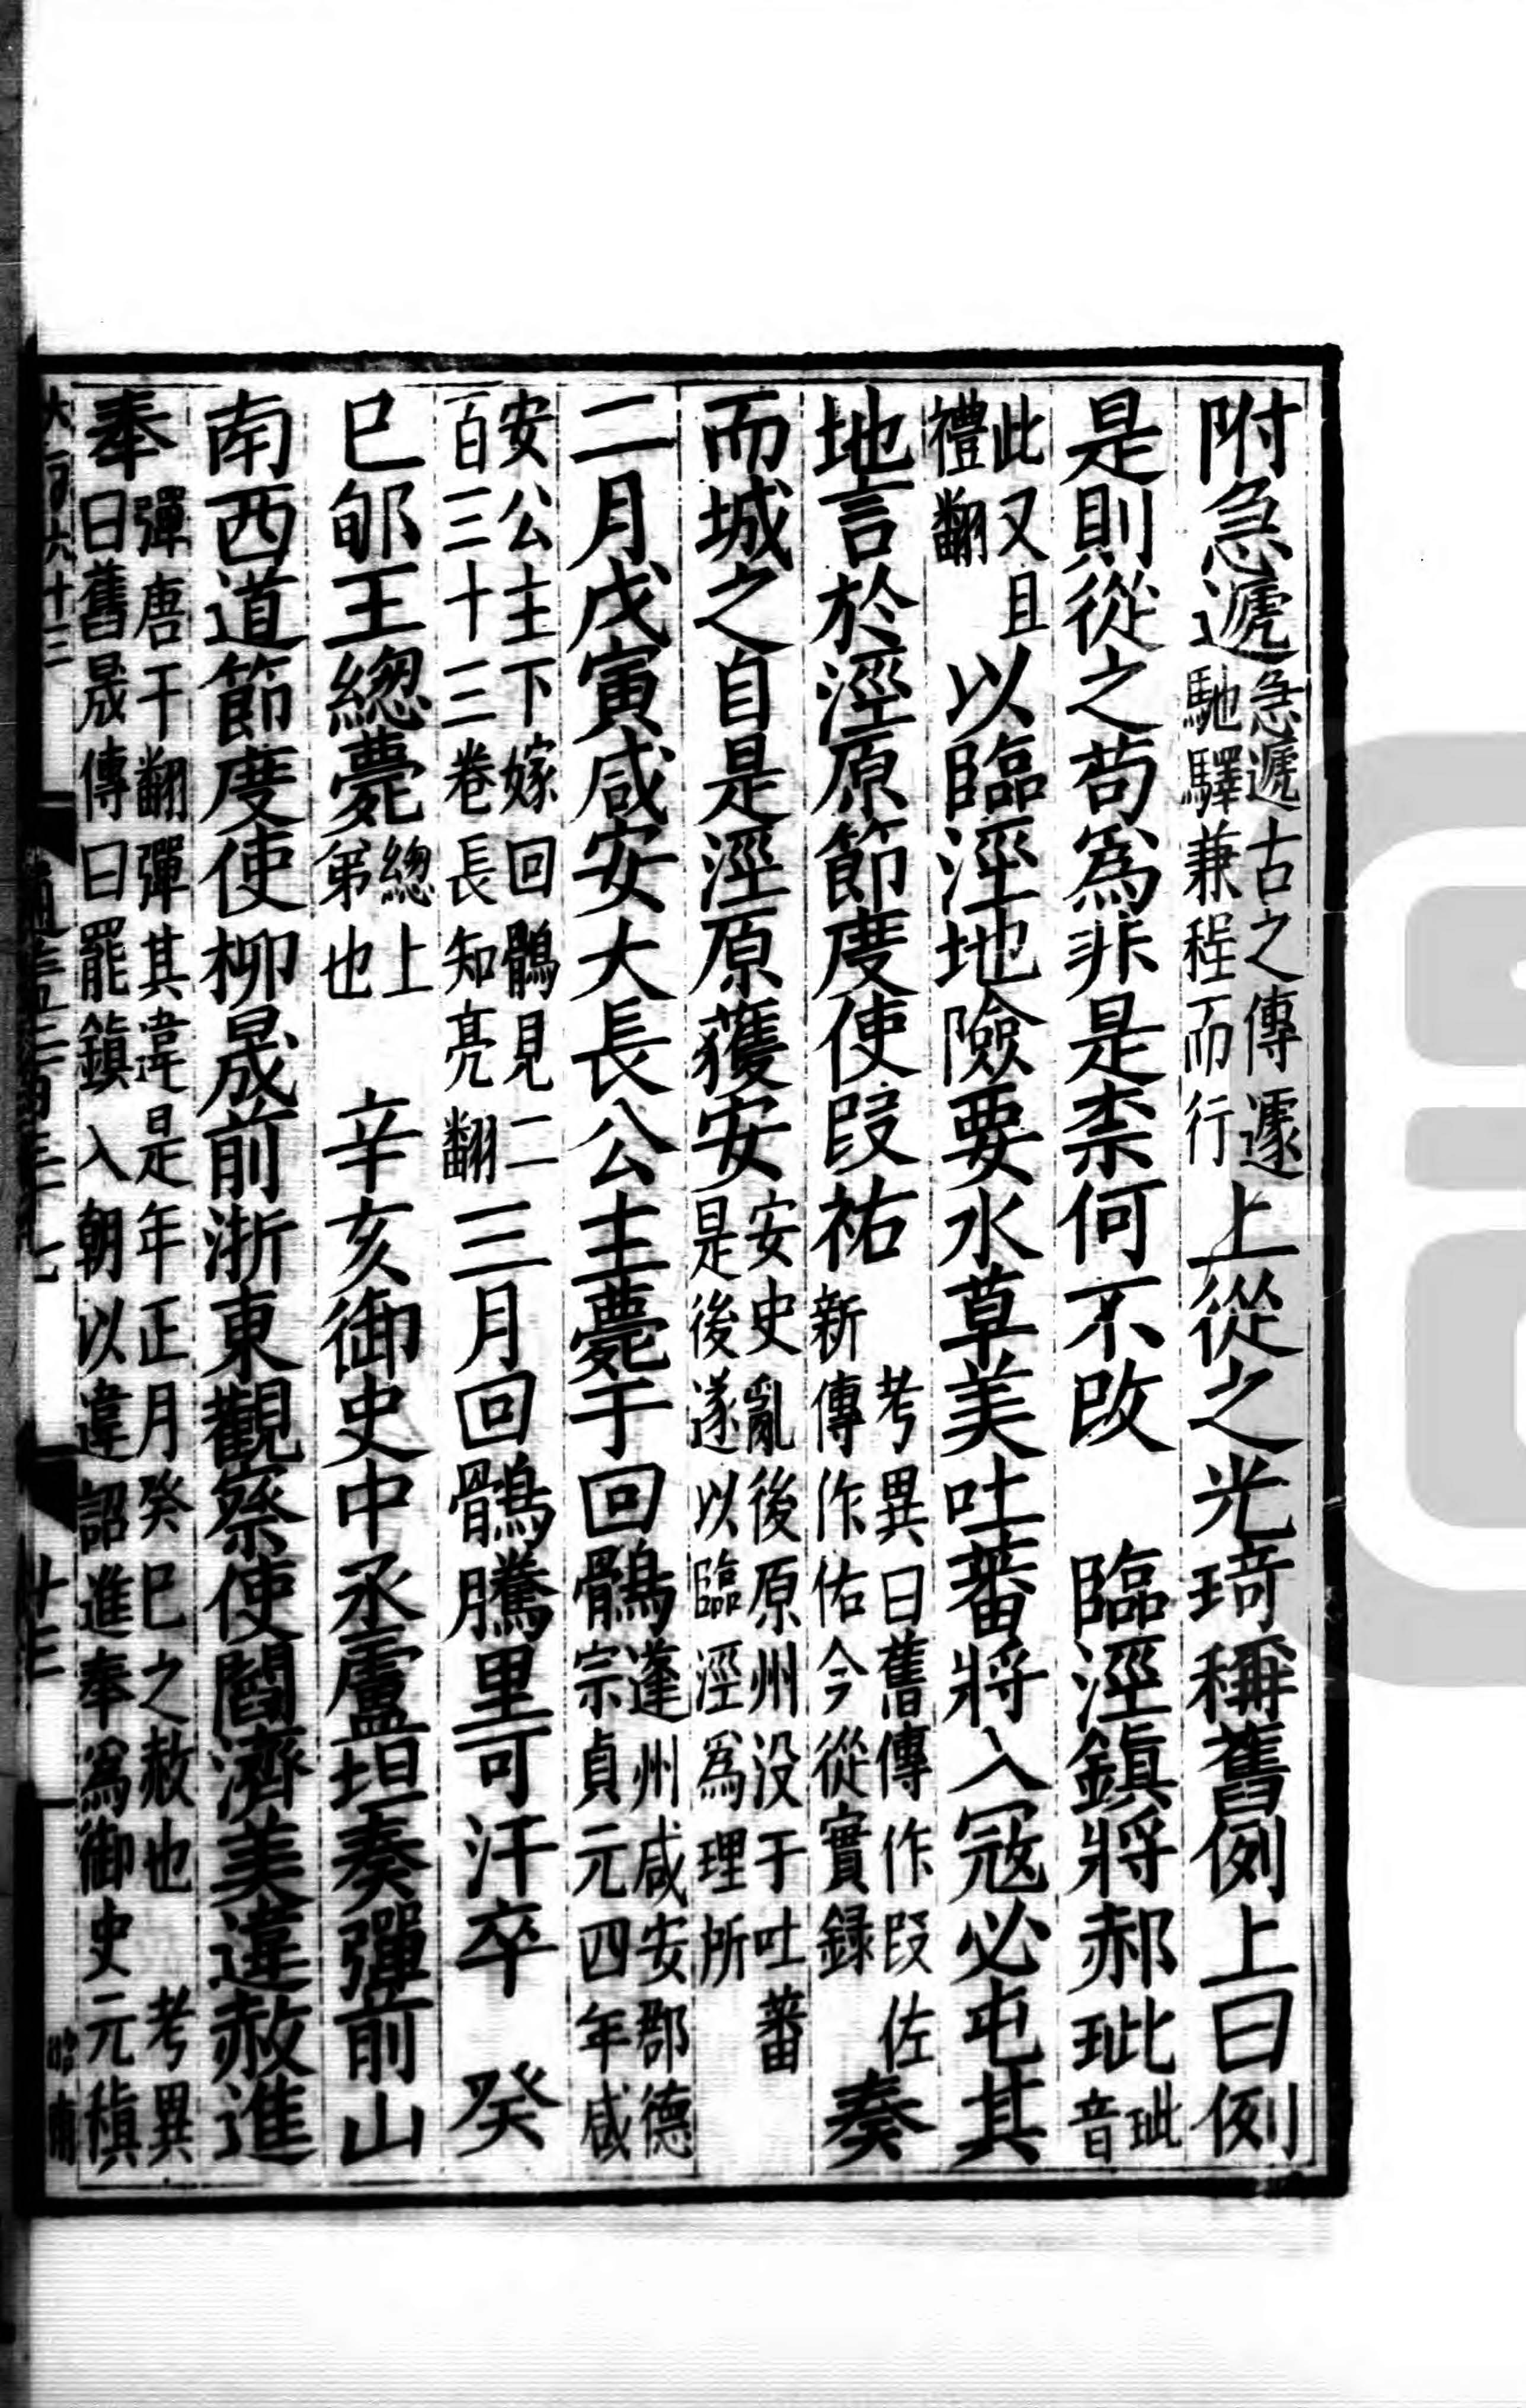 附急遞急遞古之傳遽馳驛兼程而行上從之光琦稱舊例上曰例
是則從之苟為非是柰何不改　臨涇鎮將郝玼玼音
此又且禮翻以臨涇地險要水草美吐蕃將入寇必屯其
地言於涇原節度使段祐考異曰舊傳作段佐新傳作佑今從實錄奏
而城之自是涇原獲安安史亂後原州没于吐蕃是後遂以臨涇為理所
二月戊寅咸安大長公主薨于回鶻蓬州咸安郡德宗貞元四年咸
安公主下嫁回鶻見二百三十三卷長知亮翻三月回鶻騰里可汗卒　癸
巳郇王總薨總上弟也　辛亥御史中丞盧坦奏彈前山
南西道節度使柳晟前浙東觀察使閻濟美違赦進
奉彈唐干翻彈其違是年正月癸巳之赦也考異曰舊晟傳曰罷鎮入朝以違詔進奉為御史元稹